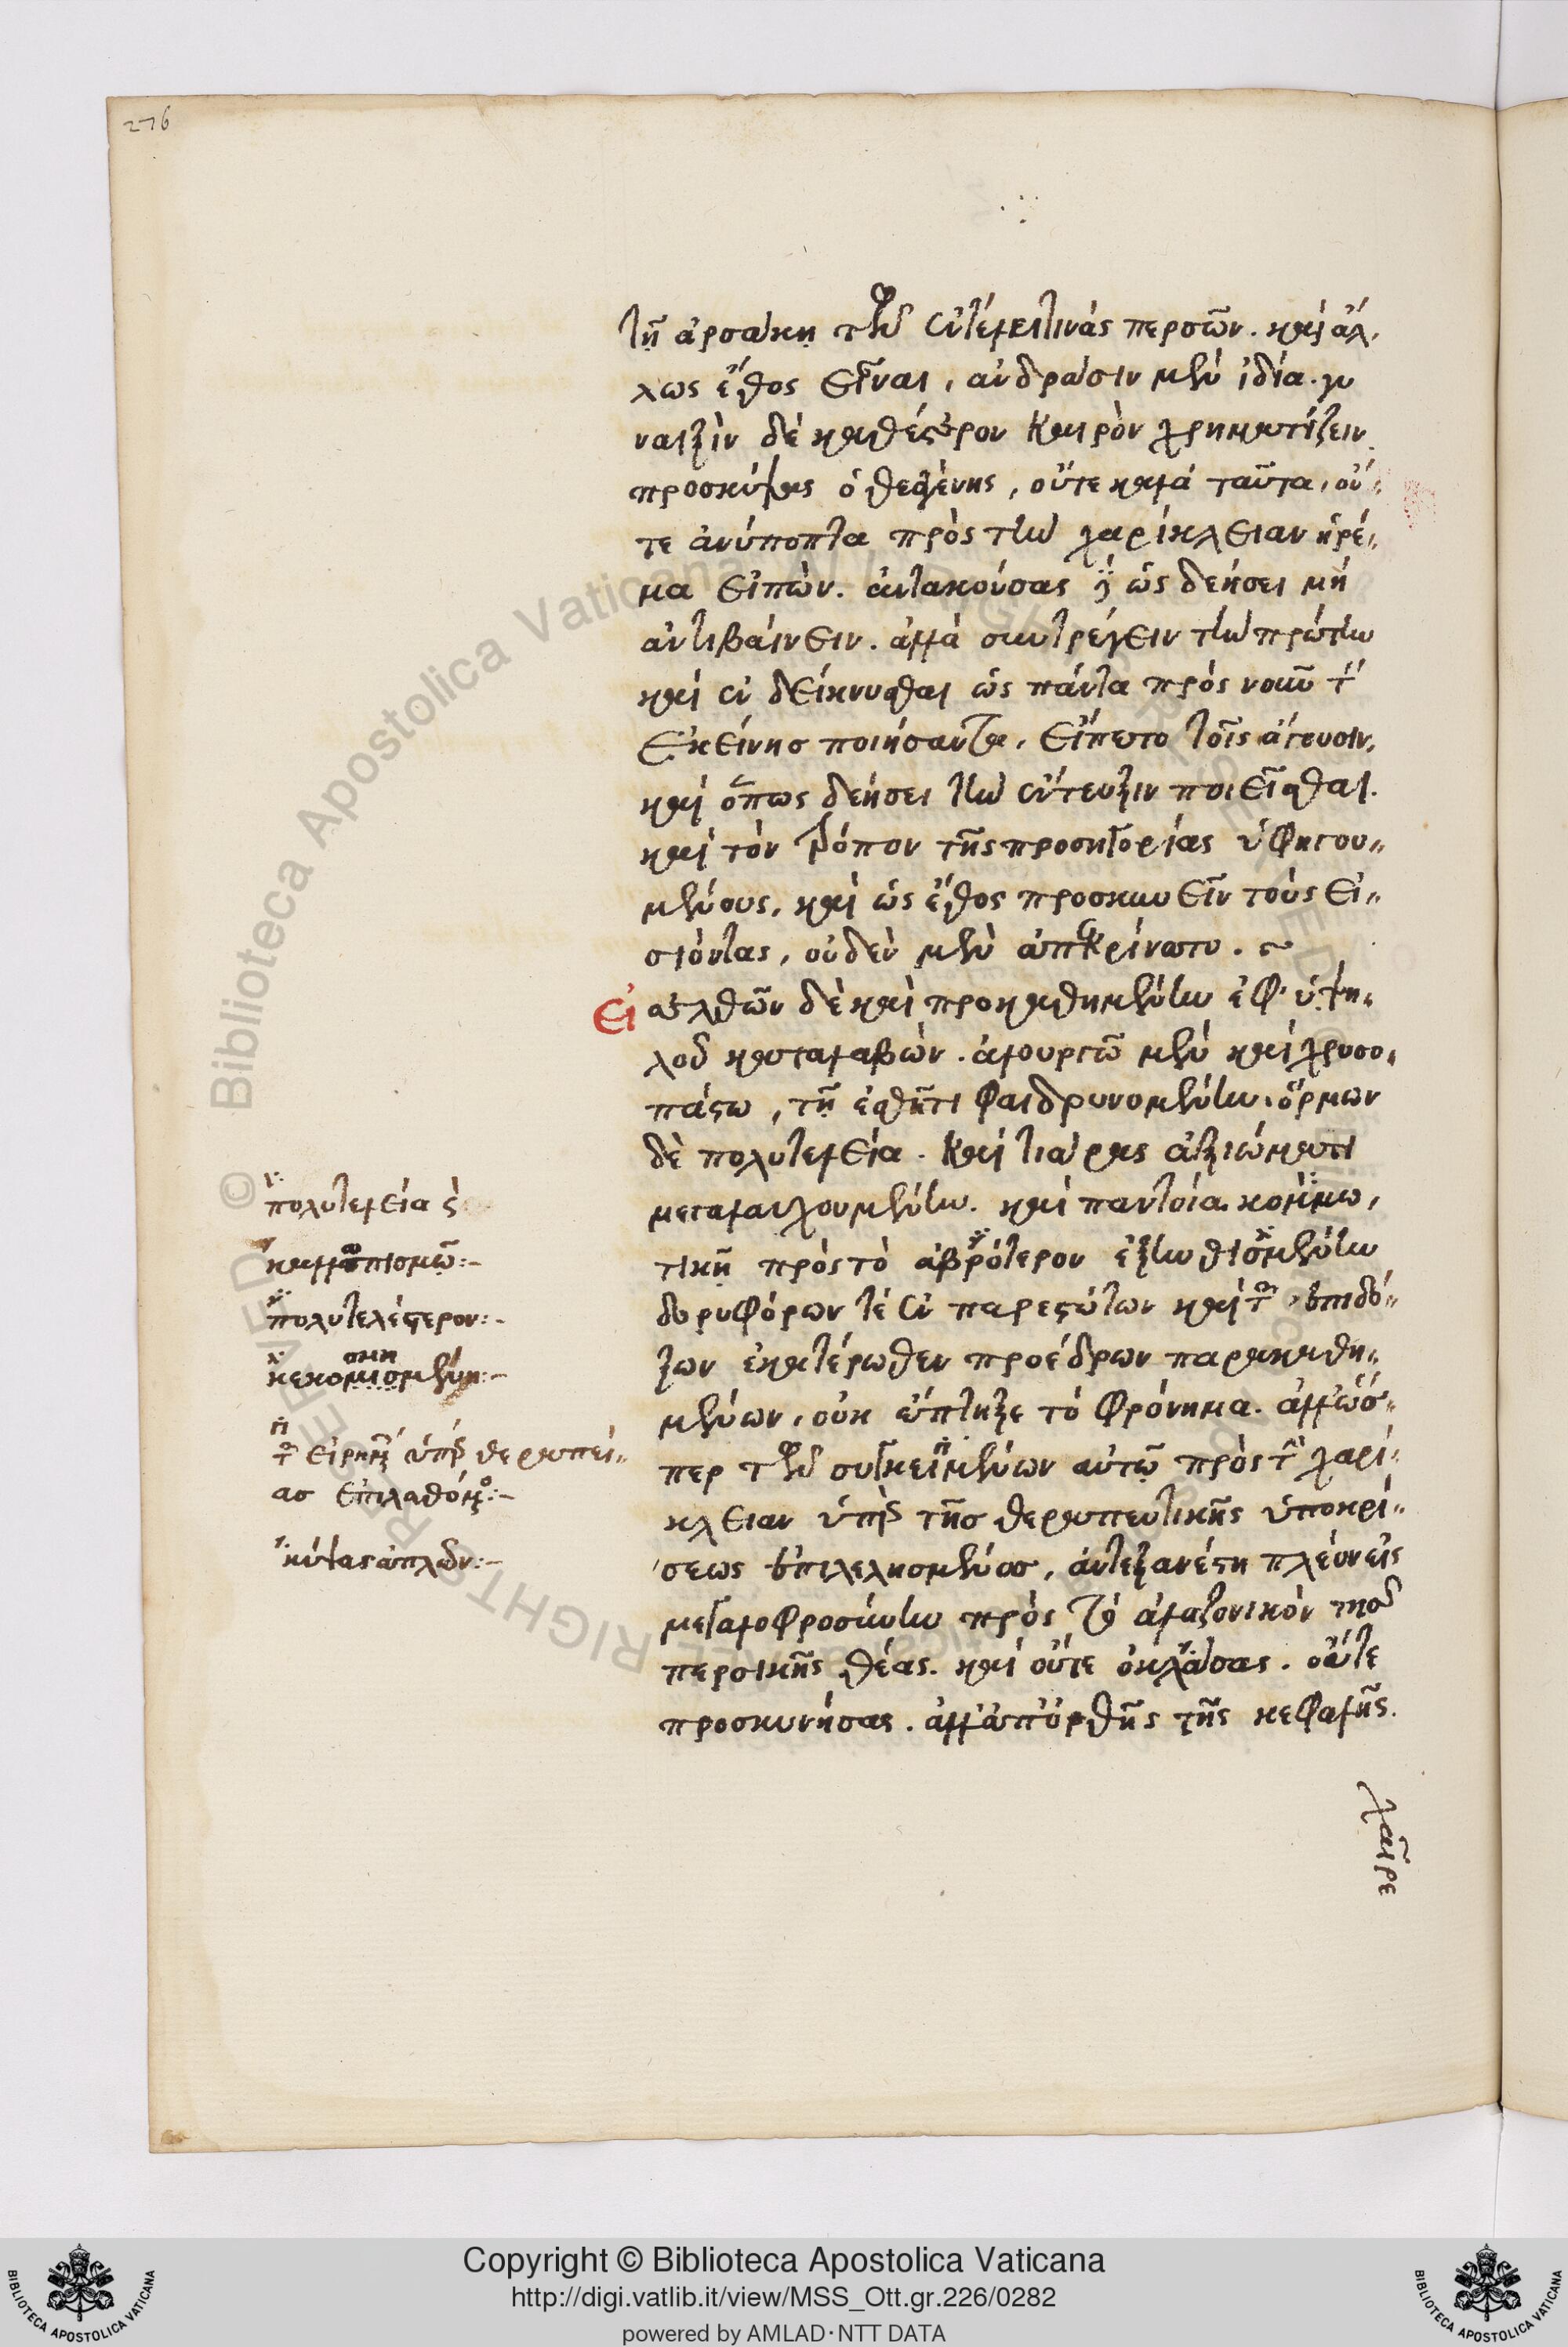 276
τῇ ἀρσάκῃ τῶν ἐντελεῖ τινὰς περσῶν. καὶ ἄλ,
λως ἔθος εἶναι, ἀνδράσιν μὲν ἰδία. γυ
ναιξὶν δὲ καθέτερον καιρὸν χρηματίζειν
προσκύψας ὁ θεαγένης, οὔτε κατὰ ταῦτα, οὔ,,
τε ἀνύποπτα πρὸς τὴν χαρίκλειαν ἠρέ,,
μα εἰπὼν. ἀντακούσας ὡς δεήσει μὴ
ἀντιβαίνειν. ἀλλὰ συντρέχειν τὴν πρώτην
καὶ ἐνδείκνυσθαι ὡς πάντα πρὸς νοῦν
ἐκείνης ποιήσαντα, εἵπετο τοῖς ἄγουσιν,
καὶ ὅπως δεήσει τὴν ἔντευξιν ποιεῖσθαι.
καὶ τὸν τρόπον τῆς προσηγορίας ὑφηγου,,
μένους, καὶ ὡς ἔθος προσκυνεῖν τοὺς εἰ,,
σιόντας, οὐδὲν μὲν ἀπεκρίνατο.
Εἰσελθὼν δὲ καὶ προκαθημένην ἐφ' ὑψη,
λοῦ καταλαβὼν. ἁλουργῶ μὲν καὶ χρυσο,
πάστω, τῇ ἐσθῆτι φαιδρυνομένην, ὅρμων
δὲ πολυτελεία. καὶ τιάρας ἀξιώματι
μεγαλαυχουμένην. καὶ παντοία κομμω,
τικῇ πρὸς τὸ ἁβρότερον ἐξηνθισμένην
δορυφόρων τὲ ἐν παρεστώτων καὶ τῶν ἐπιδό,,
ξων ἑκατέρωθεν προέδρων παρακαθη,,
μένων, οὐκ ἔπτηξε τὸ φρόνημα. ἀλλ' ὥσ,,
περ τῶν συγκειμένων αὐτῷ πρὸς τὴν χαρί,,
κλειαν ὑπὲρ τῆς θεραπευτικῆς ὑποκρί,,
σεως ἐπιλελησμένος, ἀντεξανέστη πλέον εἰς
μεγαλοφροσύνην πρὸς τὸ ἀλαζονικὸν τῆς
περσικῆς θέας. καὶ οὔτε ὀκλάσας. οὔτε
προσκυνήσας. ἀλλ' ἀπ' ὀρθῆς τῆς κεφαλῆς.
χαῖρε
πολυτελεία
καλλωπισμῶ:-
πολυτελέστερον:-
κεκοσμημένην:-
εἰρημένων ὑπὲρ θεραπεί,,
ας ἐπιλαθόμενος:-
κύψας ἁπλῶν:-
© Biblioteca Apostolica Vaticana
Copyright © Biblioteca Apostolica Vaticana
http://digi.vatlib.it/view/MSS_Ott.gr.226/0282
powered by AMLAD·NTT DATA
BIBLIOTECA APOSTOLICA VATICANA
BIBLIOTECA APOSTOLICA VATICANA